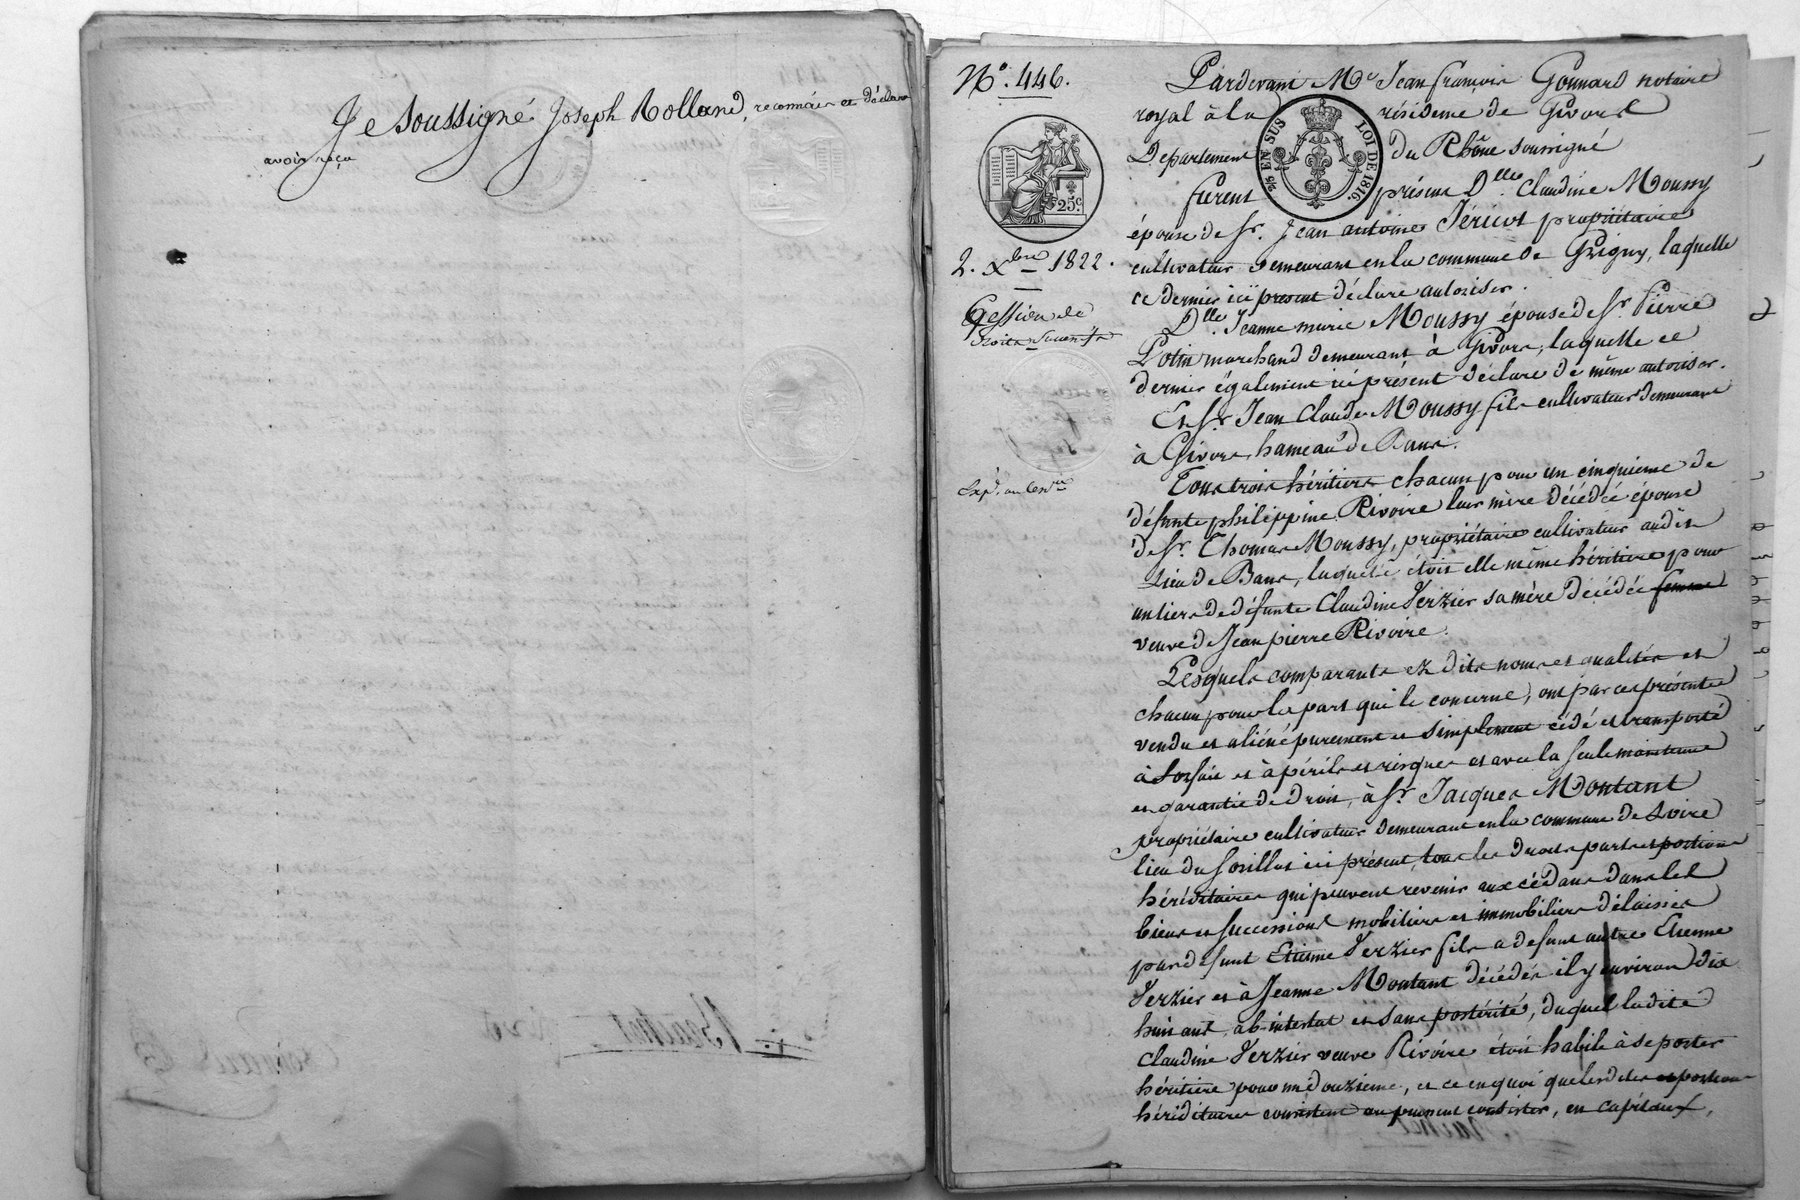 Je soussigné Joseph Rolland, reconnais et déclare
avoir reçu
N.° 446.
25.c
2. Xbre 1822.
Cession de
Droits Success.fs
Pardevant Me Jean françois Gonnard notaire
royal à la résidence de Givors
25 EN SUS LOI DE 1816.
Département du Rhône soussigné
furent présens Dlle Claudine Moussy
épouse de Sr. Jean antoine Féricot propriétaire
cultivateur demeurant en la commune de Grigny, laquelle
ce dernier ici present déclare autoriser.
Dlle Jeanne marie Moussy épouse de Sr. Pierre
Potin marchand demeurant à Givors, laquelle ce
dernier également ici présent déclare de même autoriser.
Et Sr. Jean Claude Moussy fils cultivateur demeurant
à Givors, hameau de Bans.
Tous trois héritiers chacun pour un cinquième de
défunte philippine Rivoire leur mère décédée épouse
de Sr. Thomas Moussy, propriétaire cultivateur audit
Lieu de Bans, laquelle étoit elle même héritière pour
un tiers de défunte Claudine Verzier sa mère décédée femme
veuve de Jean pierre Rivoire.
Lesquels comparants ez dits noms et qualités et
chacun pour la part qui le concerne, ont par ces présentes
vendu et aliéné purement et simplement cédé et transporté
à forfait et à périls et risques et avec la seule maintenue
en garantie de droit, à Sr. Jacques Montant
propriétaire cultivateur demeurant en la commune de Loire
lieu du ici présent, tous les droits parts et portions
héréditaires qui peuvent revenir aux cédans dans les
biens et successions mobiliers et immobiliers délaissés
par défunt Etienne Verzier fils a defunt autre Etienne
Verzier et à Jeanne Montant décédés il y environ dix
huit ans, ab-intestat et sans postérité, duquel ladite
Claudine Verzier veuve Rivoire étoit habile à se porter
héritière pour un douzième, et ce en quoi que lesdites portions
héréditaires consistent ou peuvent consister, en capitaux,